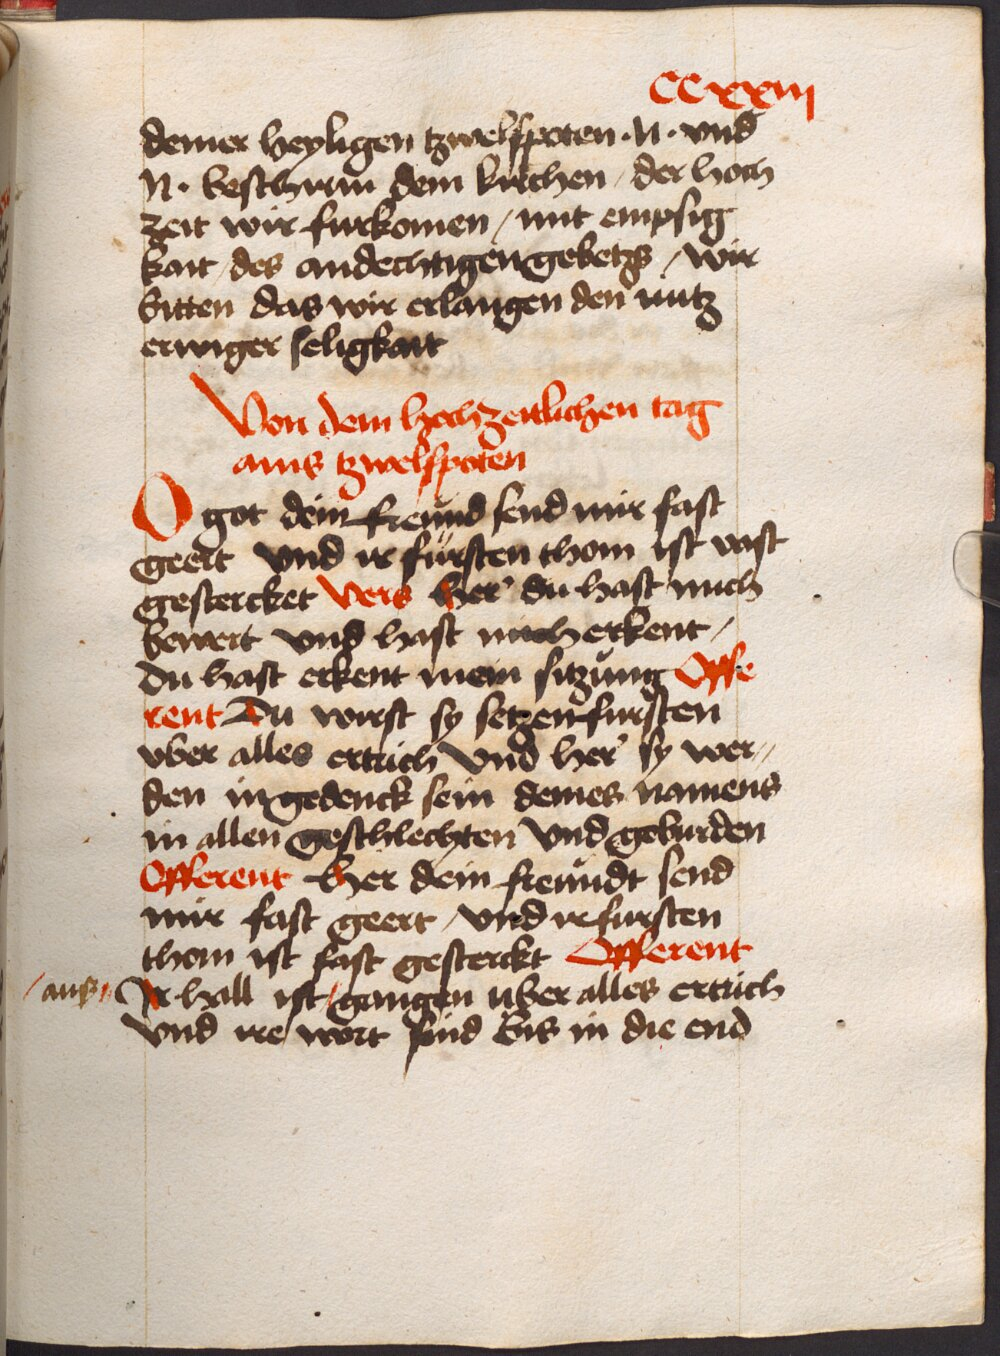 CCxxiij
deiner heyligen tzwelfpoten · N · vnd
N · beschirm dein kirchen / der hoch
zeit wir furkomen / mit empsig
kait / des andechtigen gebetzs / wir
bitten das wir erlangen den nutz
ewiger seligkait
Von dem hochzeitlichen tag
ains tzwelfpoten
O got dein freund send mir fast
geert vnd ir fürsten thom ist vast
gestercket Vers her du hast mich
bewert vnd hast mich erkent /
du hast erkent mein sitzung Offe
rent Du wirst sy setzen fursten
vber alles ertrich vnd her sy wer//
den ingedenck sein deines namens
in allen geschlechten vnd geburden
Offerent her dein freundt send
mir fast geert / vnd ir fursten
thom ist fast gesterckt Offerent
/ aus // Ir hall ist / gangen uber alles ertrich
vnd ire wort sind bis in die end